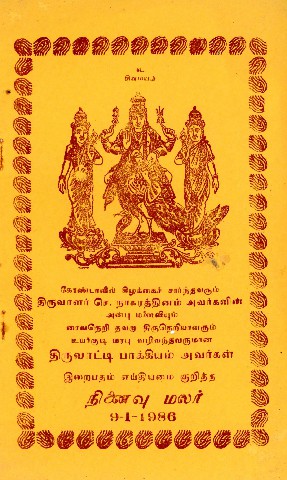 உ
சிவமயம்
கோண்டாவில் கிழக்கைச் சார்ந்தவரும்
திருவாளர் செ. நாகரத்தினம் அவர்களின்
அன்பு மனைவியும்
சைவநெறி தவறா திருநெறியாளரும்
உயர்குடி மரபு வழிவந்தவருமான
திருவாட்டி பாக்கியம் அவர்கள்
இறைபதம் எய்தியமை குறித்த
நினைவு மலர்
9-1-1986